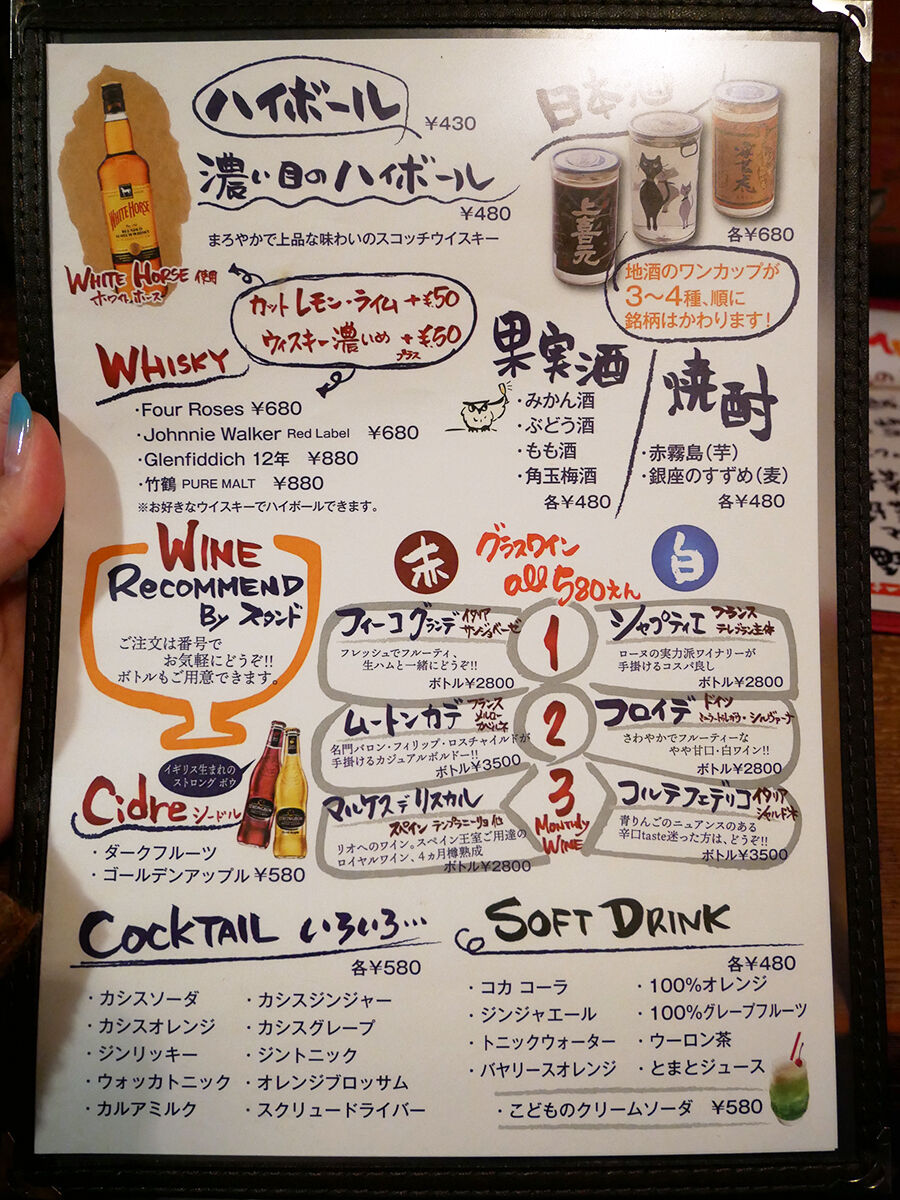 ハイボール
¥430
濃い目のハイボール
¥480
まろやかで上品な味わいのスコッチウイスキー
WHITE HORSE
WHITE HORSE 使用
ホワイトホース
日本酒
上喜元
各¥680
地酒のワンカップが
3〜4種、順に
銘柄はかわります!
カットレモン・ライム +¥50
ウィスキー濃いめ +¥50
プラス
WHISKY
・Four Roses ¥680
・Johnnie Walker Red Label ¥680
・Glenfiddich 12年 ¥880
・竹鶴 PURE MALT ¥880
※お好きなウイスキーでハイボールできます。
果実酒
・みかん酒
・ぶどう酒
・もも酒
・角玉梅酒
各¥480
焼酎
・赤霧島(芋)
・銀座のすずめ(麦)
各¥480
WINE
RECOMMEND
By スタンド
ご注文は番号で
お気軽にどうぞ!!
ボトルもご用意できます。
赤
グラスワイン
all 580えん
白
フィーコグランデ イタリア
サンジョベーゼ
フレッシュでフルーティ、
生ハムと一緒にどうぞ!!
ボトル¥2800
1
シャプティエ フランス
テレブラン主体
ローヌの実力派ワイナリーが
手掛けるコスパ良し
ボトル¥2800
ムートンカデ フランス
メルロー
カベルネ
名門バロン・フィリップ・ロスチャイルドが
手掛けるカジュアルボルドー!!
ボトル¥3500
2
フロイデ ドイツ
シルヴァーナ
さわやかでフルーティーな
やや甘口・白ワイン!!
ボトル¥2800
マルケスデリスカル
スペイン テンプラニーリョ他
リオへのワイン。スペイン王室ご用達の
ロイヤルワイン、4ヵ月樽熟成
ボトル¥2800
3
MONTHLY
WINE
コルテフェデリコ イタリア
シャルドネ
青りんごのニュアンスのある
辛口taste迷った方は、どうぞ!!
ボトル¥3500
イギリス生まれの
ストロング ボウ
Cidre シードル
・ダークフルーツ
・ゴールデンアップル ¥580
COCKTAIL いろいろ…
各¥580
・カシスソーダ
・カシスオレンジ
・ジンリッキー
・ウォッカトニック
・カルアミルク
・カシスジンジャー
・カシスグレープ
・ジントニック
・オレンジブロッサム
・スクリュードライバー
SOFT DRINK
各¥480
・コカ コーラ
・ジンジャエール
・トニックウォーター
・バヤリースオレンジ
・100%オレンジ
・100%グレープフルーツ
・ウーロン茶
・とまとジュース
・こどものクリームソーダ ¥580